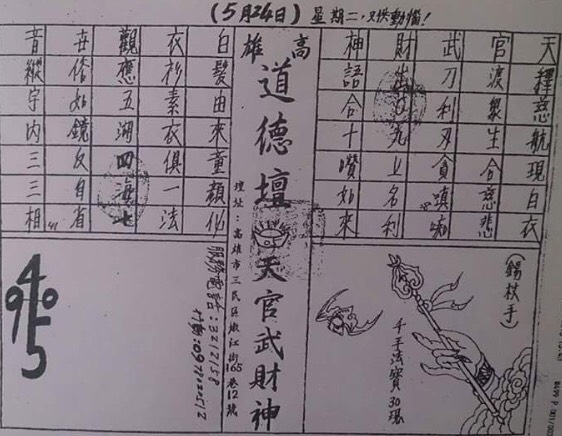 (5月24日) 星期二,
天釋慈航現白衣
官渡眾生合慈悲
武刀利刃貪嗔痴
財出九上名利
神語合十讚如來
高雄
道德壇
天官武財神
壇址:高雄市三民區嫩江街165巷12號
白髮由來童顏化
衣衫素衣俱一法
觀應五湖四海七
世俗如鏡反自省
音縱宇內三三相
(錫杖手)
千手法寶30現
服務電話:3212158
4
9 0
5